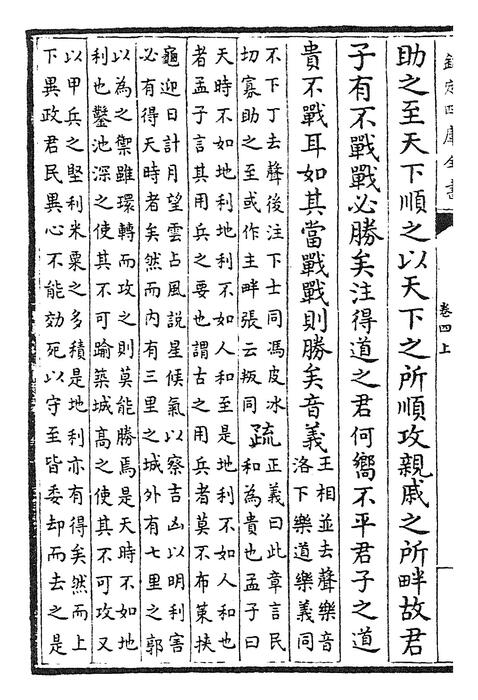 欽定四庫全書
卷四上
助之至天下順之以天下之所順攻親戚之所畔故君
子有不戰戰必勝矣注得道之君何嚮不平君子之道
貴不戰耳如其當戰戰則勝矣音義
王相並去聲樂音
洛下樂道樂義同
不下丁去聲後注下士同馮皮冰
切寡助之至或作主畔張云叛同
疏
正義曰此章言民
和為貴也孟子曰
天時不如地利地利不如人和至是地利不如人和也
者孟子言其用兵之要也謂古之用兵者莫不布策挾
龜迎日計月望雲占風說星候氣以察吉凶以明利害
必有得天時者矣然而內有三里之城外有七里之郭
以為之禦雖環轉而攻之則莫能勝焉是天時不如地
利也鑿池深之使其不可踰築城高之使其不可攻又
以甲兵之堅利米粟之多積是地利亦有得矣然而上
下異政君民異心不能効死以守至皆委却而去之是